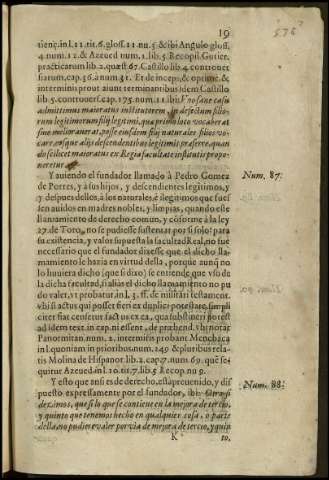 19
576
tieni; in l.11.tit.6. gloss.11.nu.5 & ibi Angulo gloss.
4. num.12. & Azeued num.1. lib.5. Recopil. Gutier.
practicarum lib.2. quæst.67. Castillo lib.4. controuer
siarum, cap.36. à num.31. Et de inceps, & optimè, &
interminis prout aiunt terminantibus Idem Castillo
lib.5. controuers. cap.175. num.11. ibi: 
admittimus maioratus institutorem, in defectum filio-
rum legitimorum filij legitimi, qua primo loco vocauerat
siue meliorauerat, posse eiusdem filij naturales filios vo-
care, eosque alijs descendentibus legitimis præferre, quan
do scilicet maioratus ex Regia facultate institutis propo-
neretur.
Y auiendo el fundador llamado à Pedro Gomez
de Porres, y à sus hijos, y descendientes legitimos, y
y despues dellos, à los naturales, è ilegitimos que fues
sen auidos en madres nobles, y limpias, quando este
llamamiento de derecho comun, y cõforme à la ley
27. de Toro, no se pudiesse sustentar por si solo: para
su existencia, y valor supuesta la facultad Real, no fue
necessario que el fundador dixesse que el dicho lla-
mamiento se haria en virtud della, porque aunq̃ no
lo huuiera dicho (que si dixo) se entiende que vsò de
la dicha facultad, si aliàs el dicho llamamiento no pu
do valer, vt probatur in l.3. ff. de militari testament.
vbi si actus qui posset fieri ex duplici potestate, simpli
citer fiat censetur factus ex ea, qua substineri potest
ad idem text. in cap. ni essent, de præbend. vbi notat
Panormitan. num.2. interminis probant Menchaca
in l. quoniam in prioribus num.249. & pluribus rela-
tis Molina de Hispanor. lib.2. cap.7. num.69. què se-
quitur Azeued. in l.10. tit.7. lib.5. Recop. nu.9.
Y esto que ansi es de derecho, està preuenido, y dis
puesto expressamente por el fundador, ibi: Otrosi
deximos, que si lo que se contiene en la mejora de tercio,
y quinto que tenemos hecho en qualquier cosa, o parte
della, no pudiere valer por via de mejora de tercio, y quin
K
to,
Num. 87.
Num. 88.